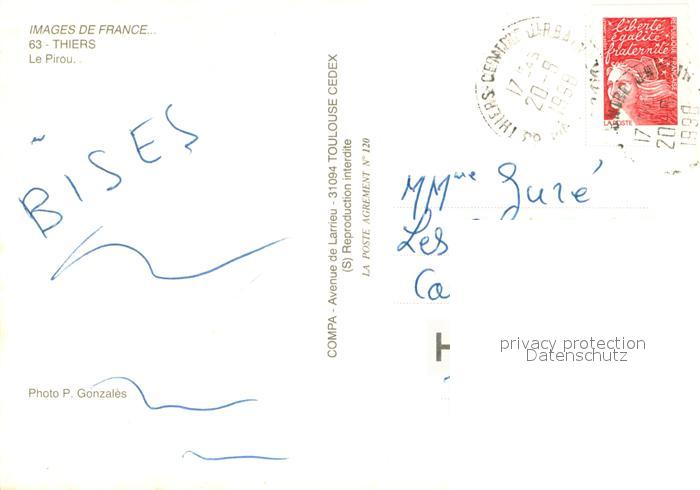 IMAGES DE FRANCE...
63 - THIERS
Le Pirou. .
BISES
Photo P. Gonzalès
COMPA - Avenue de Larrieu - 31094 TOULOUSE CEDEX
(S) Reproduction interdite
LA POSTE AGREMENT N° 120
liberté
égalité
fraternité
LA POSTE
THIERS
17
20-9
MMme
Les
Ca
privacy protection
Datenschutz